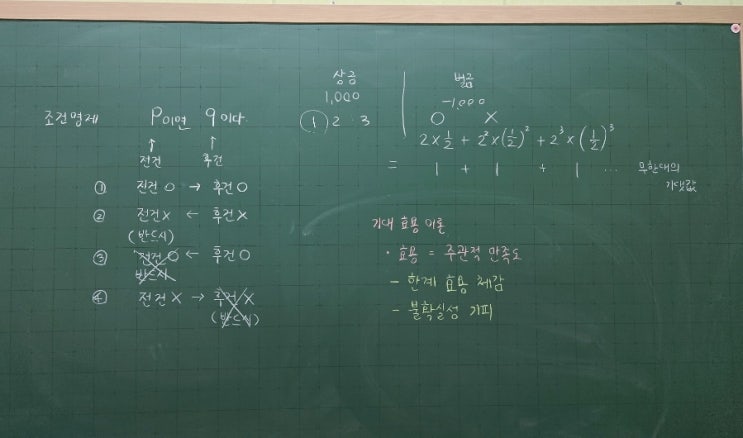 조건명제 P이면 q이다.
↑ ↑
전건 후건
① 전건 O → 후건 O
② 전건 X ← 후건 X
(반드시)
③ 전건 O ← 후건 O
반드시
④ 전건 X → 후건 X
(반드시)
상금
1,000
① 2 · 3
벌금
-1,000
O X
2×½ + 2²×(½)² + 2³×(½)³
= 1 + 1 + 1 ... 무한대의
기댓값
기대 효용 이론
· 효용 = 주관적 만족도
- 한계 효용 체감
- 불확실성 기피